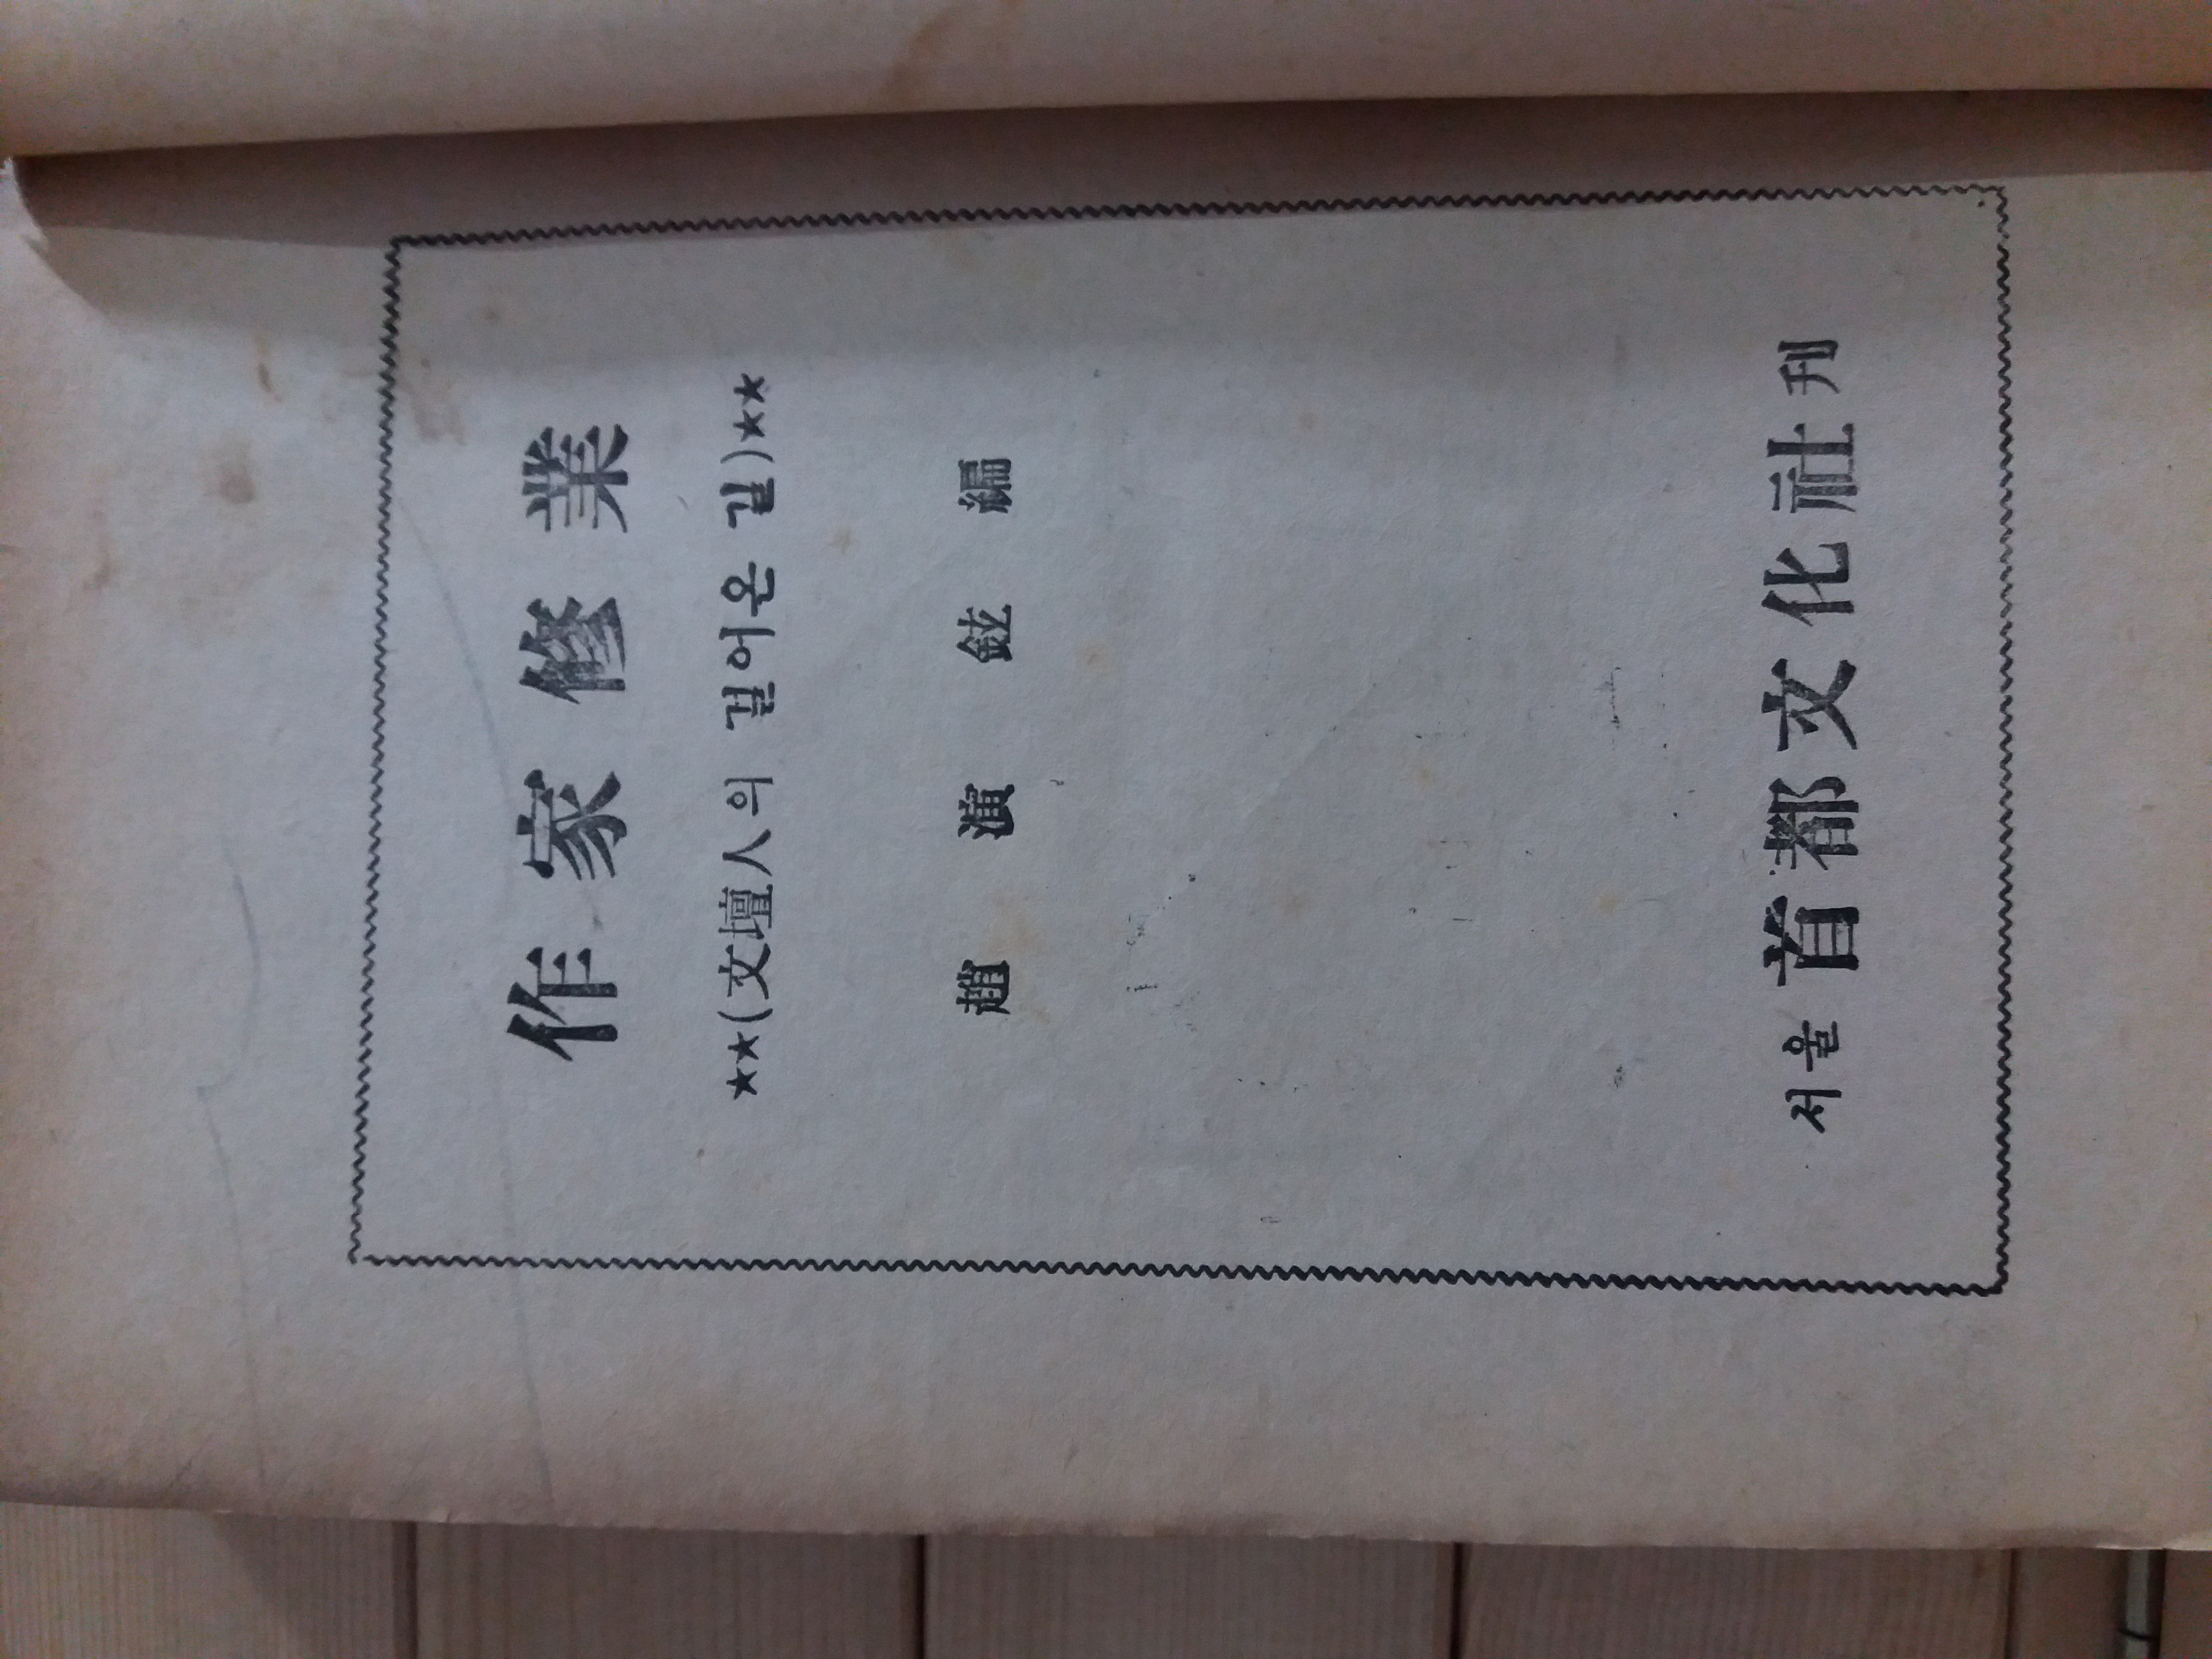 作家修業
★★(文壇人의 걸어온 길)★★
趙演鉉編
서울 首都文化社刊